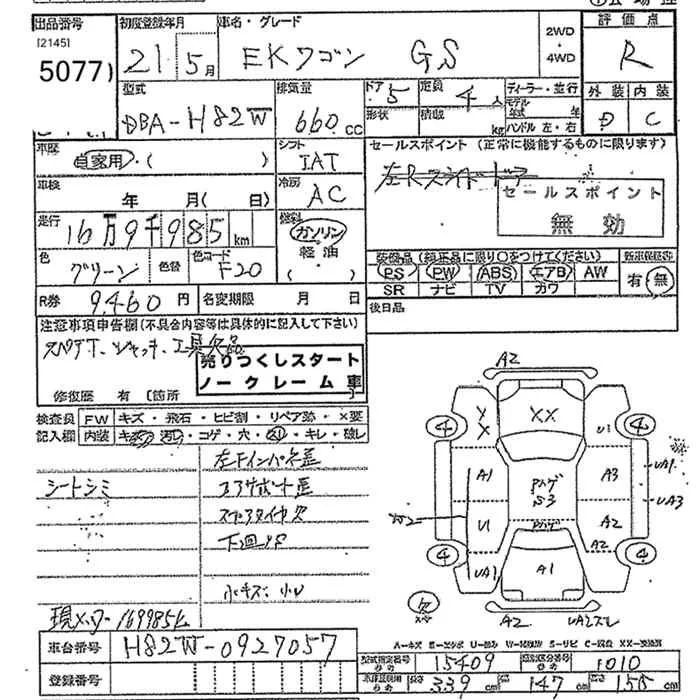 出品番号 初度登録年月 車名・グレード 評価点
[2145]
5077 21年5月 EKワゴン GS 2WD・4WD R
外装 内装
D C
型式 排気量 ドア 定員 ディーラー・並行
DBA-H82W 660cc 5 4人
形状 積載 kg モデル年式 年
ハンドル 左・右
車歴 シフト セールスポイント (正常に機能するものに限ります)
自家用・( ) IAT 左Rスライドドア
セールスポイント
無効
車検 年 月( 日) 冷房 AC
走行 16万9千985km 燃料 ガソリン・軽油
色 グリーン 色替 色コード F20
装備品 (純正品に限り○をつけてください) 新車保証書
PS PW ABS エアB AW 有・無
SR ナビ TV カワ
R券 9,460円 名変期限 月 日
後日品
注意事項申告欄(不具合内容等は具体的に記入して下さい)
スペアT、ジャッキ、工具欠品
売りつくしスタート
ノークレーム車
修復歴 有 (箇所
検査員記入欄 FW キズ・飛石・ヒビ割・リペア跡・×要
内装 キズ・汚れ・コゲ・穴・スレ・キレ・破レ
左Fインパネ歪
シートシミ コアサポート歪
スペアタイヤ欠
下回リサビ
小キズ、小U
現メーター169985k
車台番号 H82W-0927057
登録番号
A2
XX
4 4
U1
A1 A3 UA1
UA3
Pハゲ
S3
W2 U1 A2
Pハゲ
A2
4 4
UA1 A1
欠
A2 UA2スレ
A-キズ E-エクボ U-凹み W-補修波 S-サビ C-腐食 XX-交換済
型式指定番号 15409 類別区分番号 1010
339cm 147cm 155cm